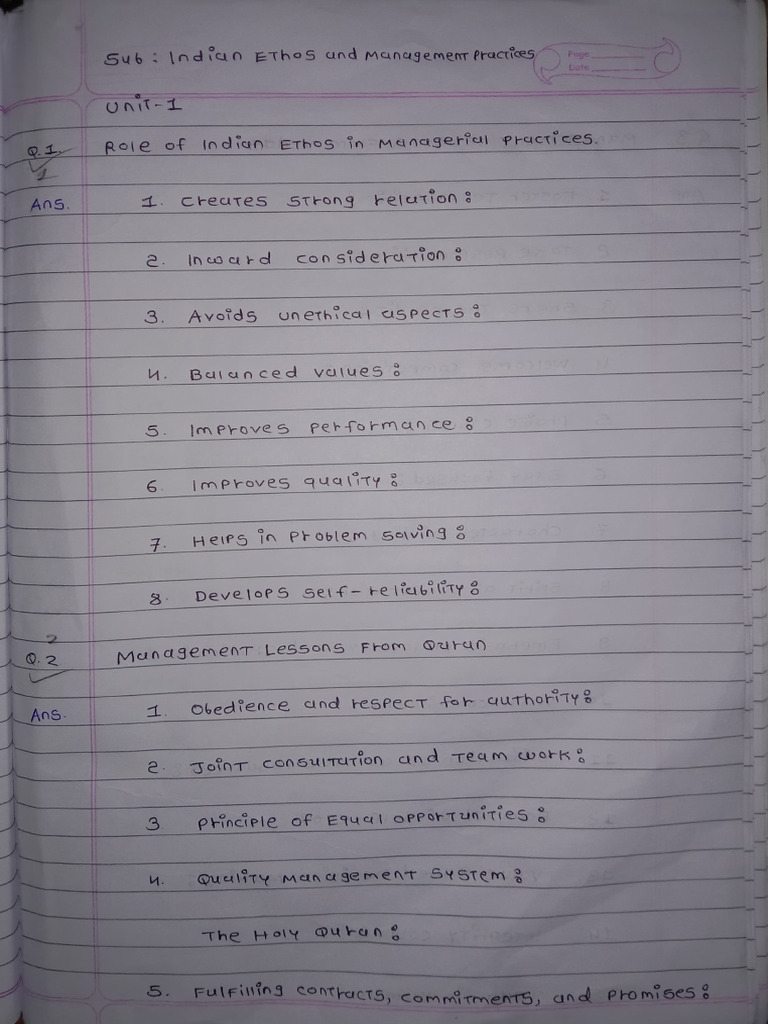 Sub : Indian Ethos and Management Practices
Page
Date
Unit-1
Q.1 Role of Indian Ethos in Managerial Practices.
1
Ans. 1. Creates strong relation :
2. Inward consideration :
3. Avoids unethical aspects :
4. Balanced values :
5. Improves performance :
6. Improves quality :
7. Helps in problem solving :
8. Develops self-reliability :
2
Q.2 Management Lessons From Quran
Ans. 1. Obedience and respect for authority :
2. Joint consultation and team work :
3 Principle of Equal opportunities :
4. Quality management system :
The Holy Quran :
5. Fulfilling contracts, commitments, and promises :